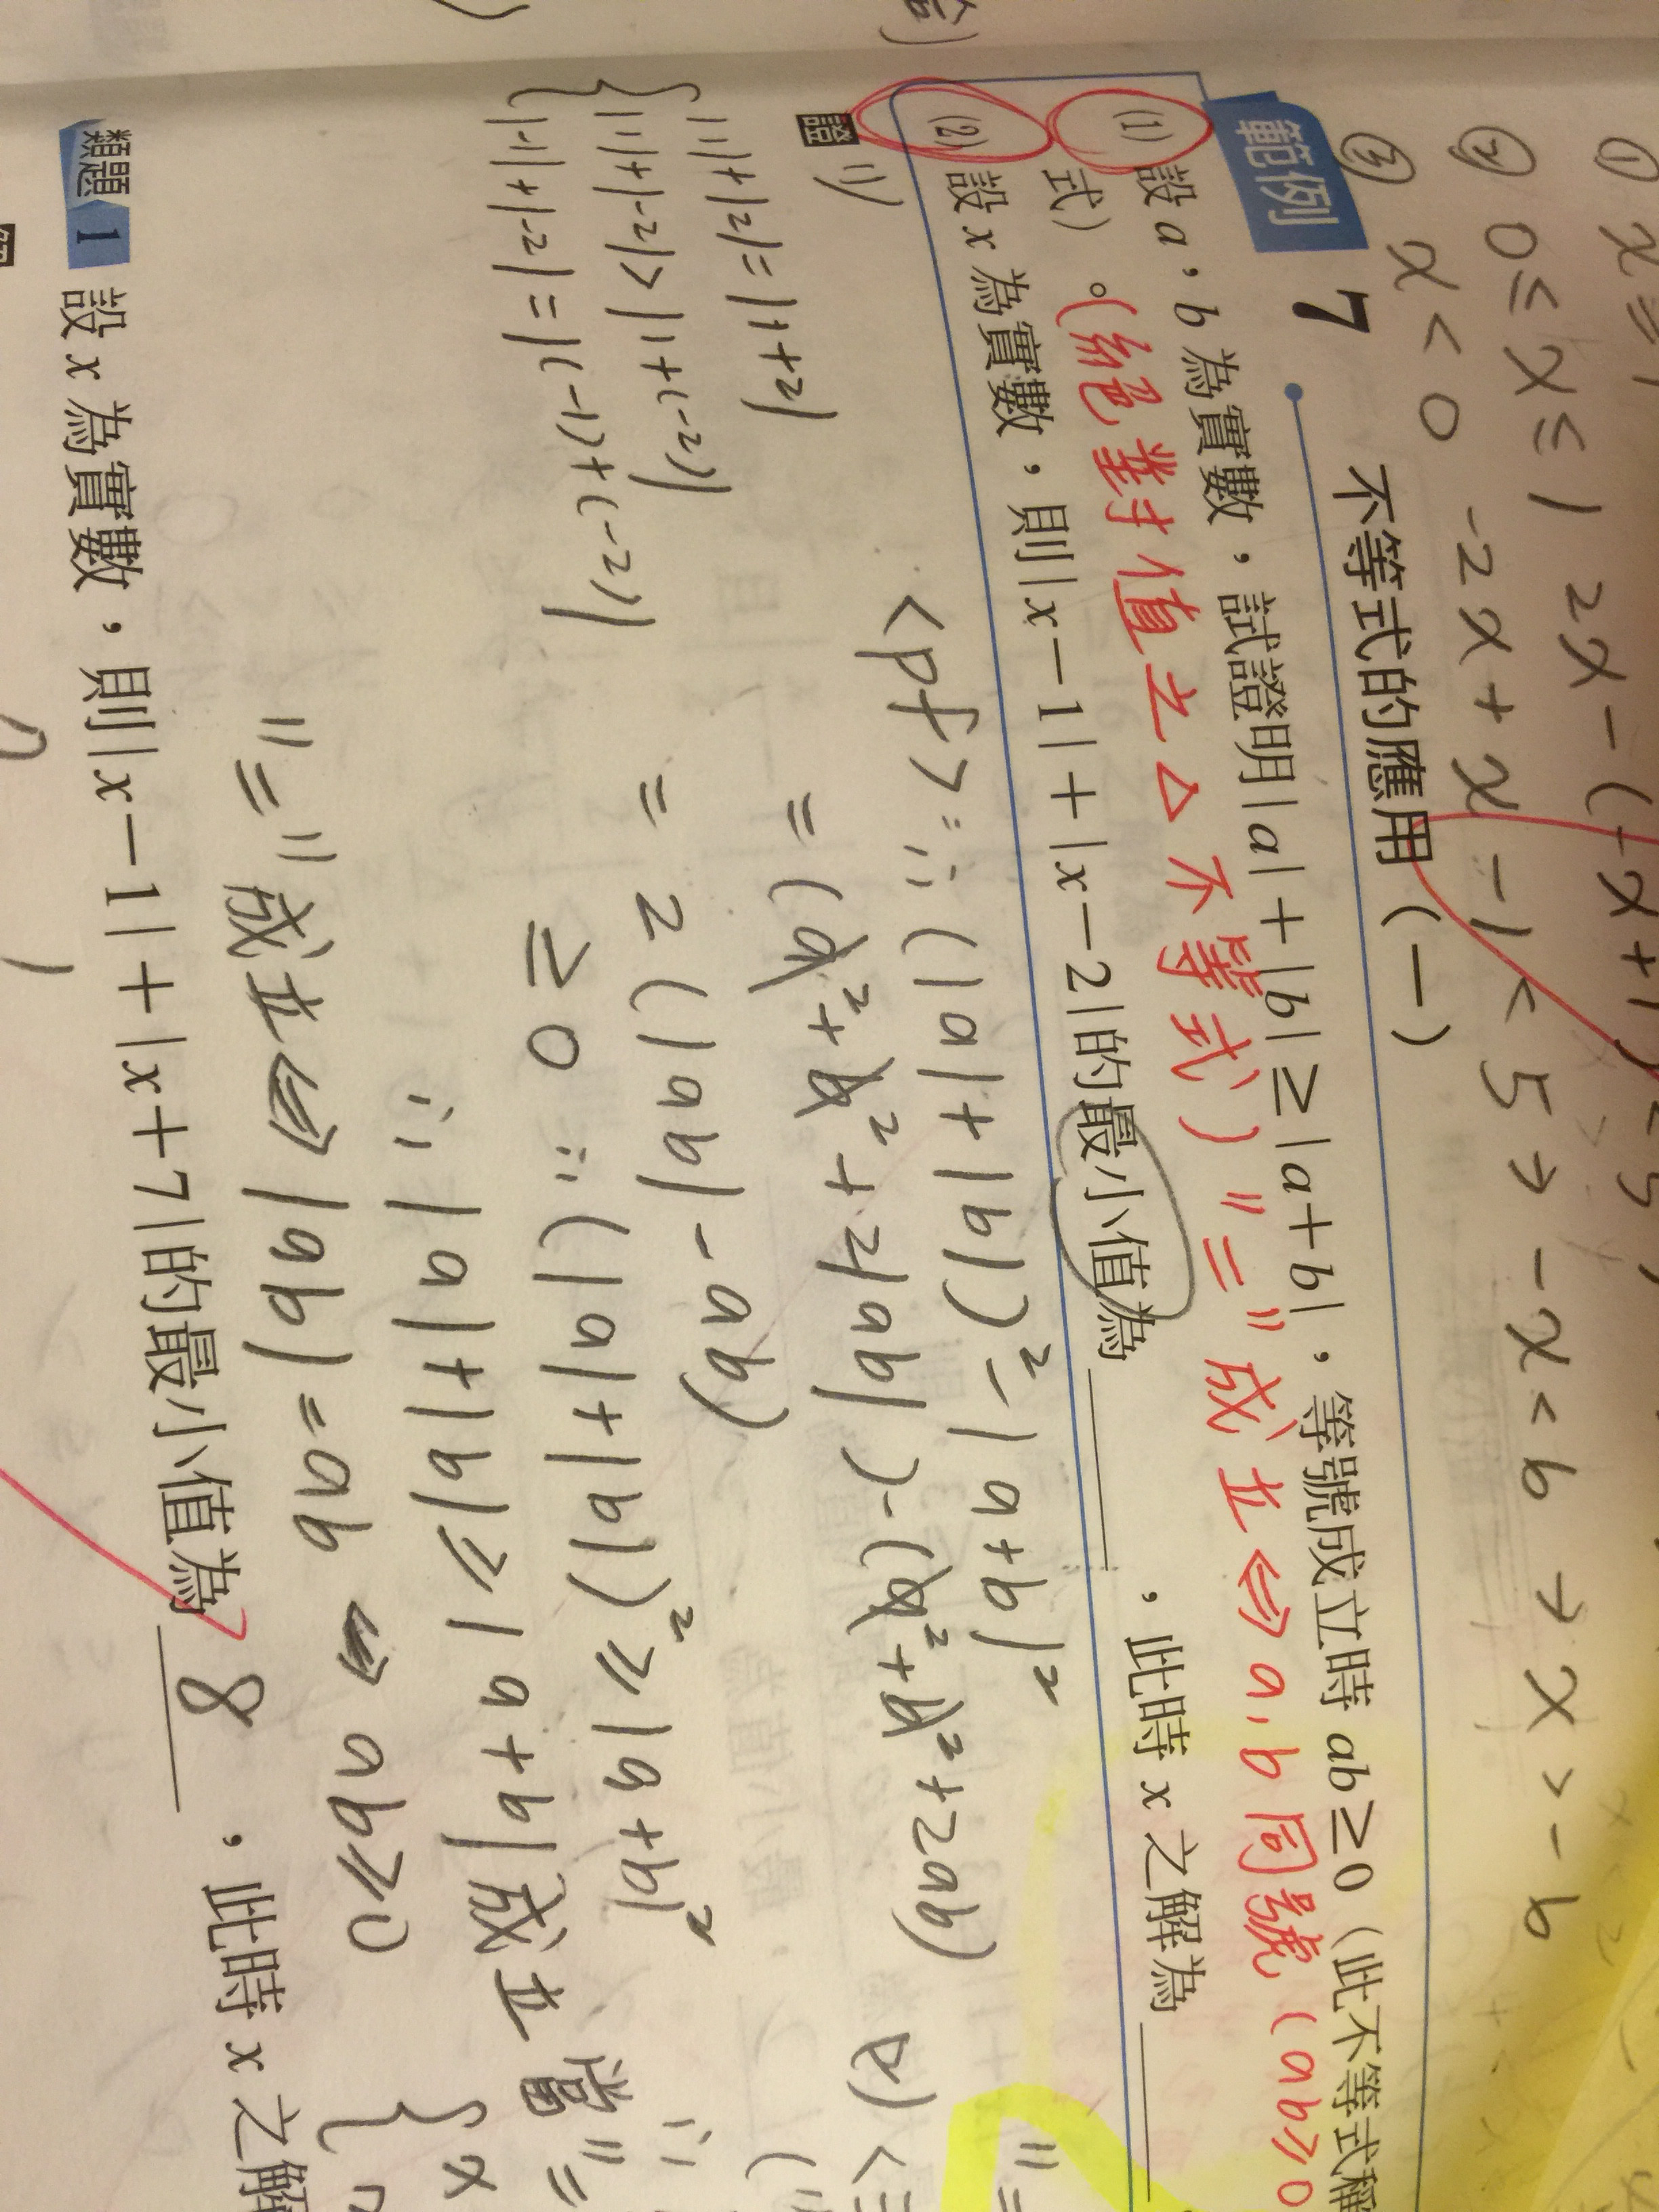 ① x ≥ 1 2x-(-x+1)<5
② 0≤x≤1
③ x<0 -2x+x-1<5 → -x<6 → x>-6
範例 7 不等式的應用(一)
(1) 設 a,b 為實數,試證明|a|+|b|≥|a+b|,等號成立時 ab≥0(此不等式稱
式)。(絕對值之△不等式) "=" 成立 ⇔ a,b 同號 (ab≥0
(2) 設 x 為實數,則|x-1|+|x-2|的最小值為____,此時 x 之解為____
證 (1)
<pf>∵ (|a|+|b|)²-|a+b|²
= (a²+b²+2|ab|)-(a²+b²+2ab)
= 2(|ab|-ab)
≥ 0 ∵ (|a|+|b|)² ≥ |a+b|²
∴ |a|+|b| ≥ |a+b| 成立 當 "=
"=" 成立 ⇔ |ab| = ab ⇔ ab ≥ 0
|1|+|2|=|1+2|
|1|+|-2|>|1+(-2)|
|-1|+|-2|=|(-1)+(-2)|
類題 1 設 x 為實數,則|x-1|+|x+7|的最小值為 8 ,此時 x 之解